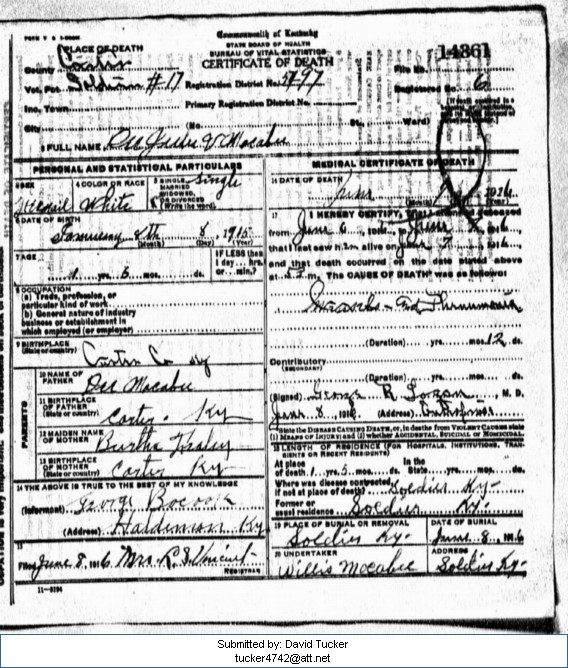 FORM V S 1-
Commonwealth of Kentucky
STATE BOARD OF HEALTH
BUREAU OF VITAL STATISTICS
CERTIFICATE OF DEATH
14861
1 PLACE OF DEATH
County Carter
File No.
Vot. Pct. #17 Registration District No. 97
Registered No. 6
Inc. Town Primary Registration District No.
City (No. St., Ward)
2 FULL NAME Macabee
PERSONAL AND STATISTICAL PARTICULARS
3 SEX 4 COLOR OR RACE White
5 SINGLE, MARRIED, WIDOWED, OR DIVORCED (Write the word) Single
6 DATE OF BIRTH
8 1915
(Month) (Day) (Year)
7 AGE
1 yrs. 5 mos. ds.
IF LESS than 1 day... hrs. or... min.?
8 OCCUPATION
(a) Trade, profession, or particular kind of work
(b) General nature of industry business or establishment in which employed (or employer)
9 BIRTHPLACE (State or country) Carter Co Ky
PARENTS
10 NAME OF FATHER Macabee
11 BIRTHPLACE OF FATHER (State or country) Carter Ky
12 MAIDEN NAME OF MOTHER Bertha
13 BIRTHPLACE OF MOTHER (State or country) Carter Ky
14 THE ABOVE IS TRUE TO THE BEST OF MY KNOWLEDGE
(Informant) George Bocook
(Address) Haldeman Ky
15
Filed June 8, 1916 Mrs R S
REGISTRAR
11-
MEDICAL CERTIFICATE OF DEATH
16 DATE OF DEATH
June 1916
(Month) (Day) (Year)
17 I HEREBY CERTIFY, That I attended deceased
from June 6, 191 June 1916
that I last saw him alive on June 7 1916
and that death occurred on the date stated above
at m. The CAUSE OF DEATH was as follows:
(Duration) yrs. mos. 12 ds.
Contributory
(SECONDARY)
(Duration) yrs. mos. ds.
(Signed) George R Logan, M. D.
June 8, 1916 (Address)
State the DISEASE CAUSING DEATH, or, in deaths from VIOLENT CAUSES state (1) MEANS OF INJURY; and (2) whether ACCIDENTAL, SUICIDAL or HOMICIDAL.
18 LENGTH OF RESIDENCE (FOR HOSPITALS, INSTITUTIONS, TRANSIENTS OR RECENT RESIDENTS)
At place of death 1 yrs. 5 mos. ds. In the State yrs. mos. ds.
Where was disease contracted, if not at place of death? Soldier Ky
Former or usual residence Soldier Ky.
19 PLACE OF BURIAL OR REMOVAL Soldier Ky.
DATE OF BURIAL June 8, 1916
20 UNDERTAKER Willis McCabee
ADDRESS Soldier Ky.
Submitted by: David Tucker
tucker4742@att.net